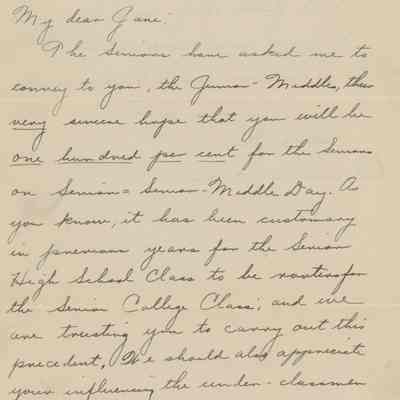 My dear Jane:
The Seniors have asked me to
convey to you, the Junior-Middles, their
very sincere hope that you will be
one hundred per cent for the Seniors
on Senior = Senior-Middle Day. As
you know, it has been customary
in previous years for the Senior
High School Class to be rooting for
the Senior College Class; and we
are trusting you to carry out this
precedent. We should also appreciate
your influencing the under-classmen